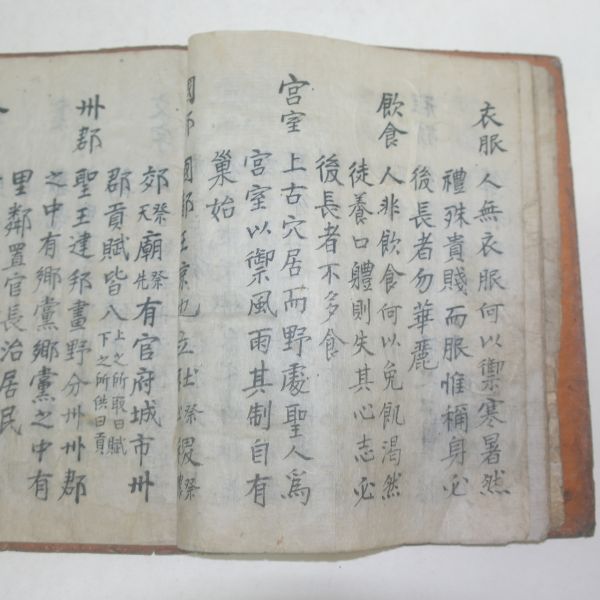 衣服 人無衣服何以禦寒暑然
禮殊貴賤而服惟稱身必
後長者勿華麗
飲食 人非飲食何以免飢渴然
徒養口軆則失其心志必
後長者不多食
宮室 上古穴居而野處聖人爲
宮室以禦風雨其制自有
巢始
國都 國都王京也立社祭稷祭
郊祭天廟祭先有官府城市州
郡貢賦皆入上之所取曰賦下之所供曰貢
州郡 聖王建邦畫野分州州郡
之中有鄉黨鄉黨之中有
里鄰置官長治居民